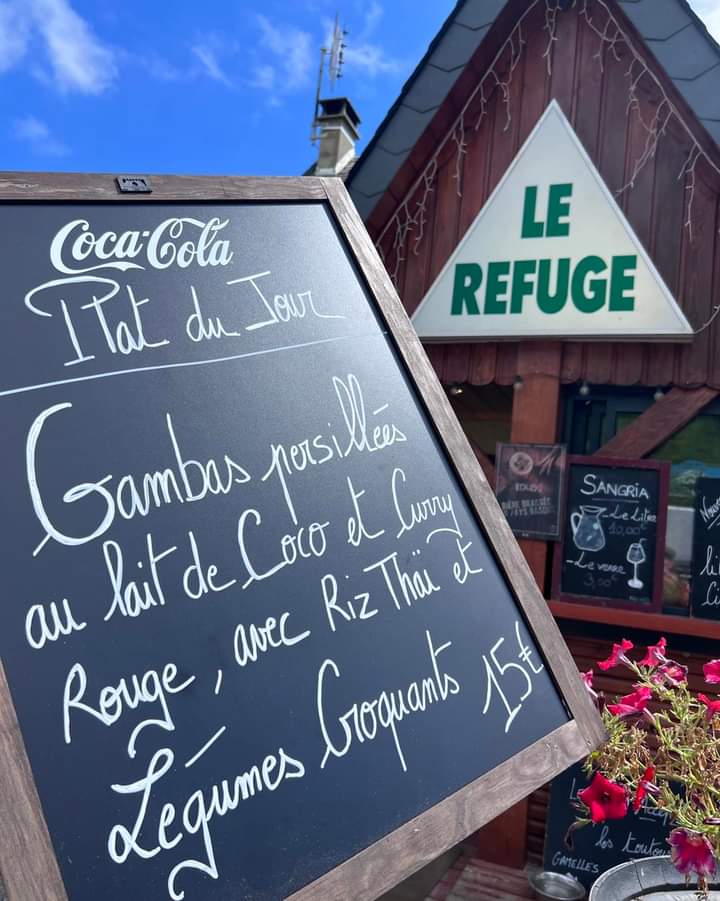 Coca-Cola
Plat du Jour
Gambas persillées
au lait de Coco et Curry
Rouge, avec Riz Thaï et
Légumes Croquants 15€
LE
REFUGE
BIÈRE BRASSÉE
SANGRIA
- Le Litre
10,00€
- Le verre
3,00€
les toutous
GAMELLES